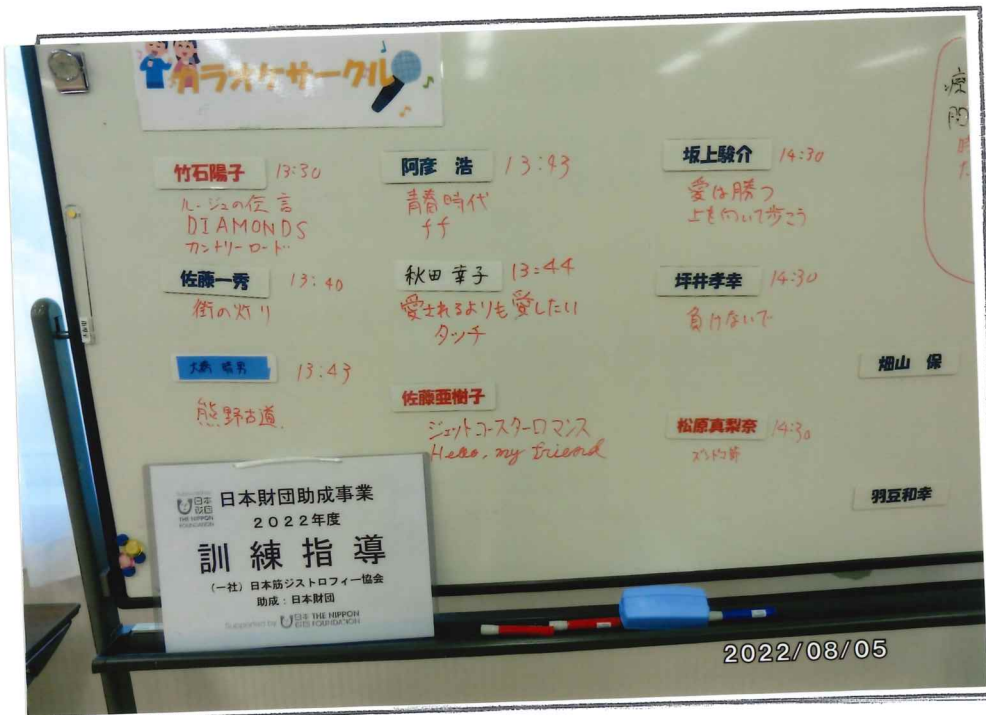 カラオケサークル
竹石陽子 13:30
ルージュの伝言
DIAMONDS
カントリーロード
佐藤一秀 13:40
街の灯り
13:43
熊野古道
阿彦 浩 13:43
青春時代
ff
秋田 幸子 13:44
愛されるよりも愛したい
タッチ
佐藤亜樹子
ジェットコースターロマンス
Hello, my friend
坂上駿介 14:30
愛は勝つ
上を向いて歩こう
坪井孝幸 14:30
負けないで
畑山 保
松原真梨奈 14:30
ズンドコ節
羽豆和幸
日本財団
THE NIPPON
FOUNDATION
日本財団助成事業
2022年度
訓練指導
(一社)日本筋ジストロフィー協会
助成:日本財団
Supported by 日本財団 THE NIPPON FOUNDATION
2022/08/05